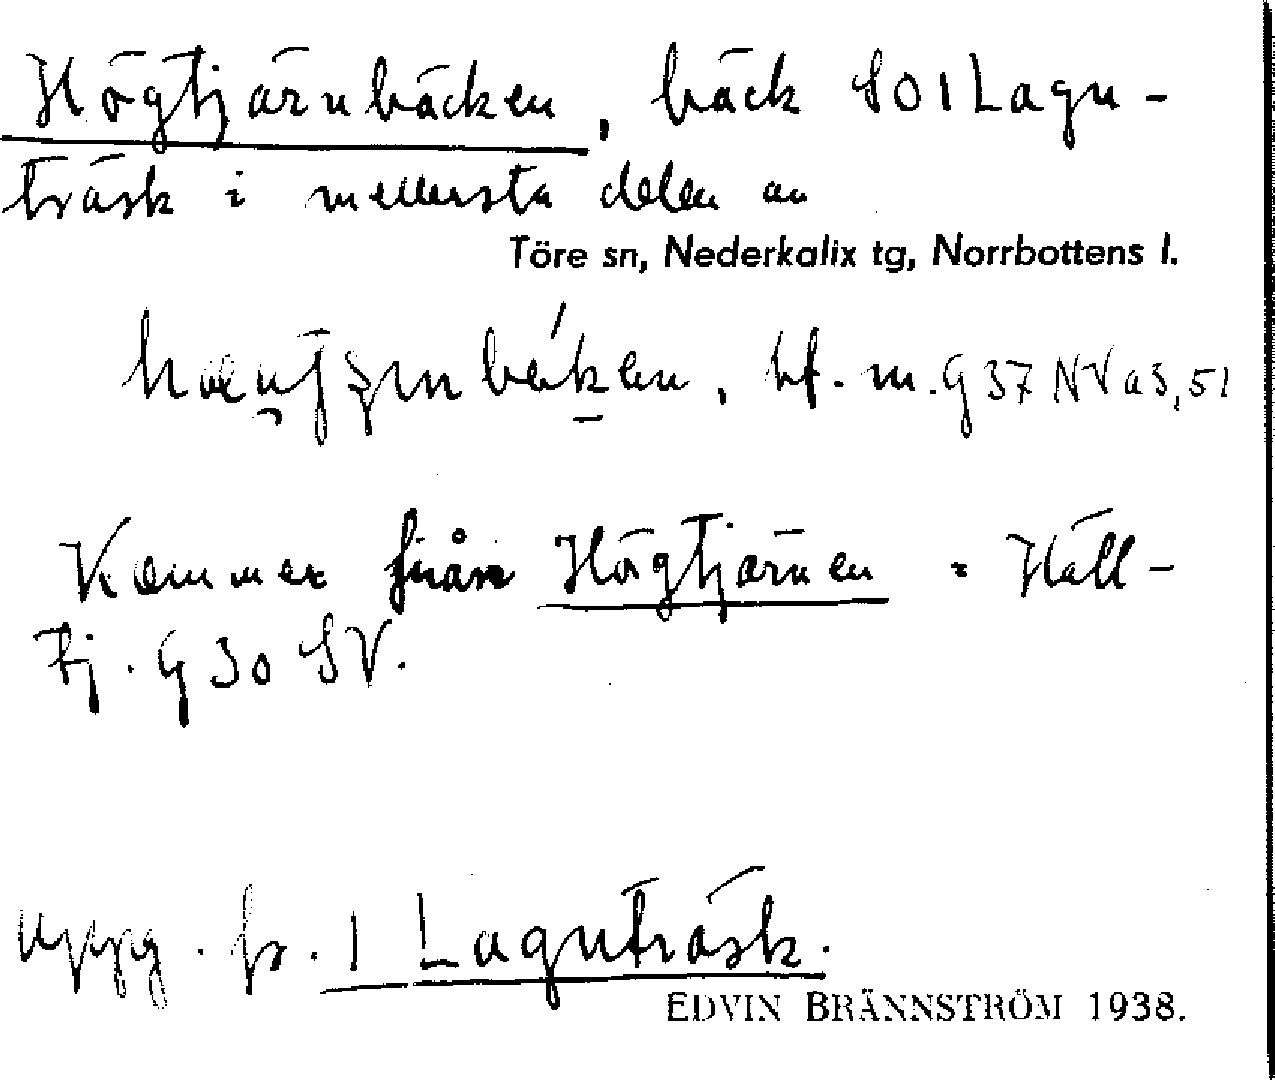 Högtjärnbäcken, bäck SO 1 Lagn-
träsk i mellersta delen av
Töre sn, Nederkalix tg, Norrbottens l.
bf. m. G 37 NV a 3, 51
Kommer från Högtjärnen = Häll-
tj. G 30 SV.
uppg. fr. 1 Lagnträsk.
EDVIN BRÄNNSTRÖM 1938.